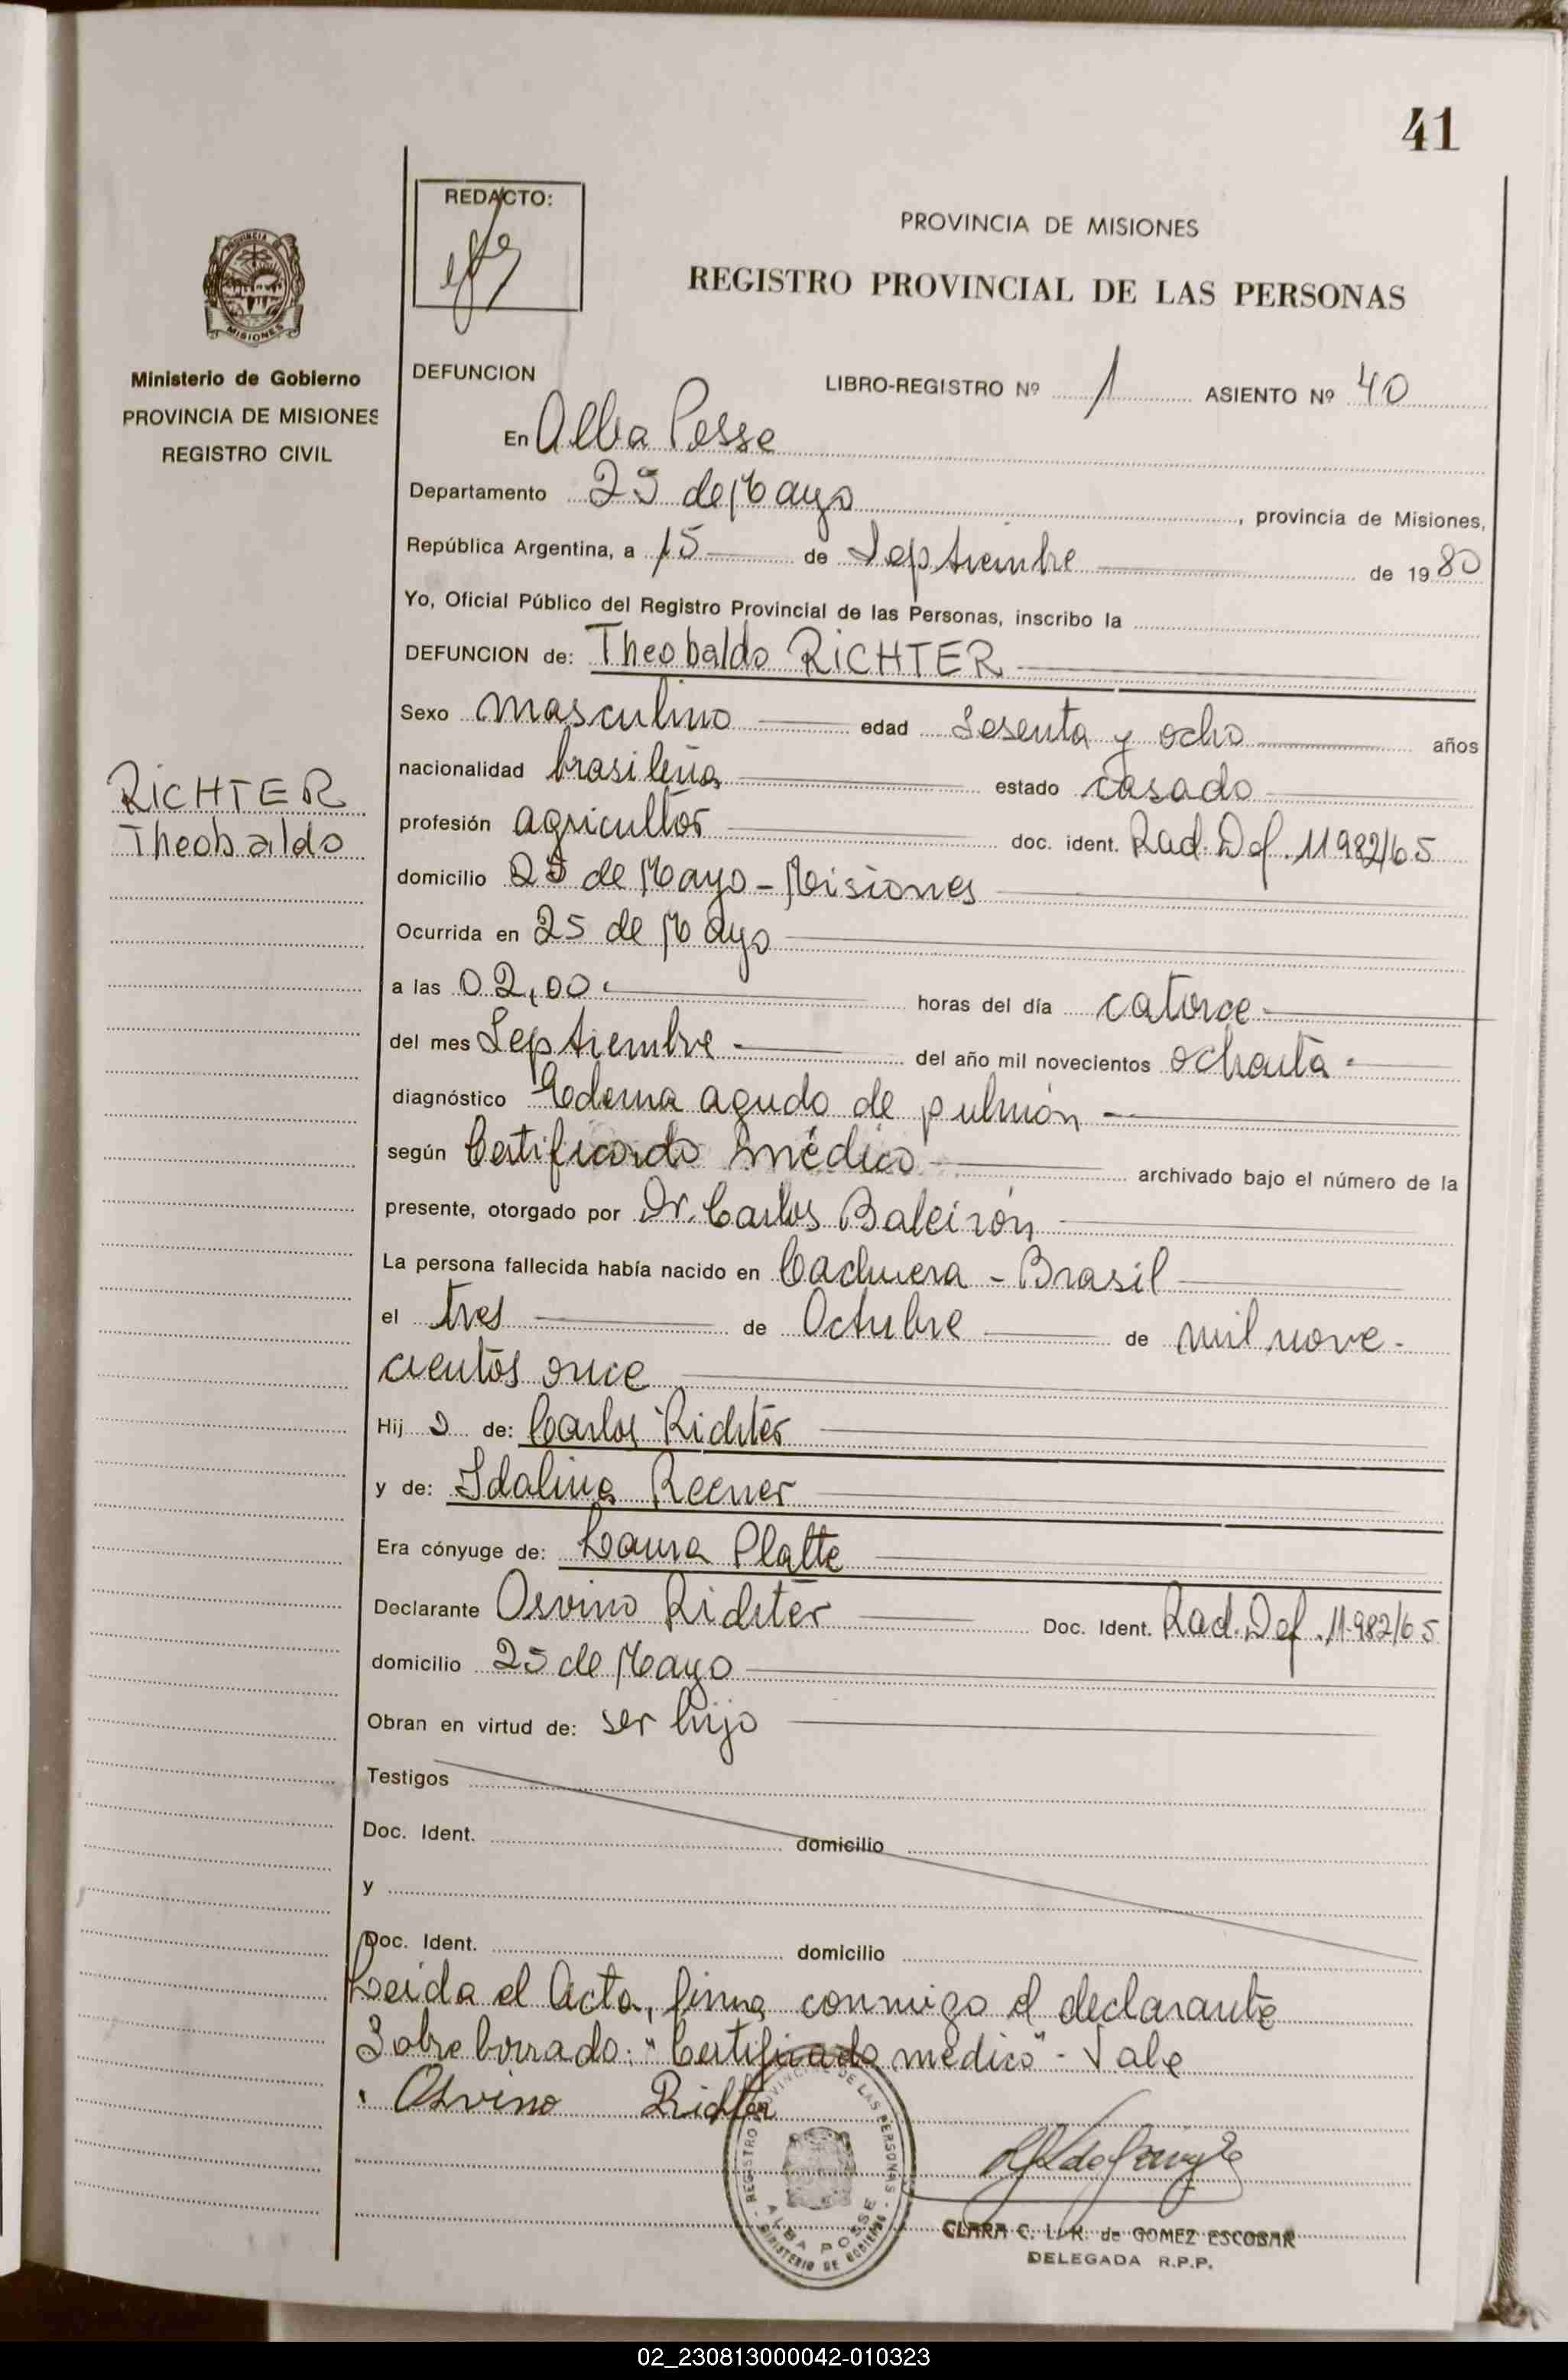 41
REDACTO:
PROVINCIA DE MISIONES
REGISTRO PROVINCIAL DE LAS PERSONAS
MISIONES
Ministerio de Gobierno
PROVINCIA DE MISIONES
REGISTRO CIVIL
DEFUNCION LIBRO-REGISTRO Nº 1 ASIENTO Nº 40
En Alba Posse
Departamento 25 de Mayo, provincia de Misiones,
República Argentina, a 15 de Septiembre de 1980
Yo, Oficial Público del Registro Provincial de las Personas, inscribo la
DEFUNCION de: Theobaldo RICHTER
Sexo masculino edad sesenta y ocho años
nacionalidad brasileña estado casado
RICHTER
Theobaldo
profesión agricultor doc. ident. Rad. Def. 11982/65
domicilio 25 de Mayo - Misiones
Ocurrida en 25 de Mayo
a las 02,00 horas del día catorce
del mes Septiembre del año mil novecientos ochenta
diagnóstico Edema agudo de pulmón
según Certificado médico archivado bajo el número de la
presente, otorgado por Dr. Carlos Baleirón
La persona fallecida había nacido en Cachuera - Brasil
el tres de Octubre de mil nove-
cientos once
Hijo de: Carlos Richter
y de: Idalina Recner
Era cónyuge de: Laura Platte
Declarante Osvino Richter Doc. Ident. Rad. Def. 11.982/65
domicilio 25 de Mayo
Obran en virtud de: ser hijo
Testigos
Doc. Ident. domicilio
y
Doc. Ident. domicilio
Leída el Acta, firma conmigo el declarante
Sobre borrado: "Certificado médico" - Vale
Osvino Richter
REGISTRO PROVINCIAL DE LAS PERSONAS
ALBA POSSE
MINISTERIO DE GOBIERNO
CLARA C. L. K. de GOMEZ ESCOBAR
DELEGADA R.P.P.
02_230813000042-010323